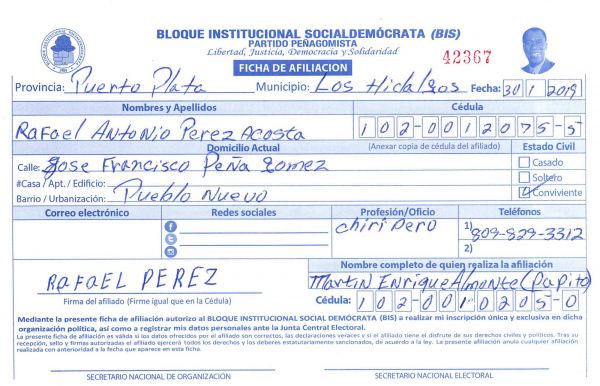 BLOQUE INSTITUCIONAL SOCIALDEMÓCRATA (BIS)
PARTIDO PEÑAGOMISTA
Libertad, Justicia, Democracia y Solidaridad
FICHA DE AFILIACION
42367
Provincia: Puerto Plata Municipio: Los Hidalgos Fecha: 30/1/2019
Nombres y Apellidos Cédula
Rafael Antonio Perez Acosta 102-0012075-5
Domicilio Actual (Anexar copia de cédula del afiliado) Estado Civil
Calle: Jose Francisco Peña Gomez Casado
#Casa / Apt. / Edificio: Soltero
Barrio / Urbanización: Pueblo Nuevo Conviviente
Correo electrónico Redes sociales Profesión/Oficio Teléfonos
chiripero 1) 809-829-3312
2)
Nombre completo de quien realiza la afiliación
RAFAEL PEREZ Martin Enrique Almonte (Papito)
Firma del afiliado (Firme igual que en la Cédula) Cédula: 102-0010205-0
Mediante la presente ficha de afiliación autorizo al BLOQUE INSTITUCIONAL SOCIAL DEMÓCRATA (BIS) a realizar mi inscripción única y exclusiva en dicha
organización política, así como a registrar mis datos personales ante la Junta Central Electoral.
La presente ficha de afiliación es válida si los datos ofrecidos por el afiliado son correctos, las declaraciones veraces y si el afiliado tiene el disfrute de sus derechos civiles y políticos. Tras su
recepción, sello y firmas autorizadas el afiliado ejercerá todos los derechos y los deberes estatutariamente sancionados, de acuerdo a la ley. La presente afiliación anula cualquier afiliación
realizada con anterioridad a la fecha que aparece en esta ficha.
SECRETARIO NACIONAL DE ORGANIZACIÓN SECRETARIO NACIONAL ELECTORAL